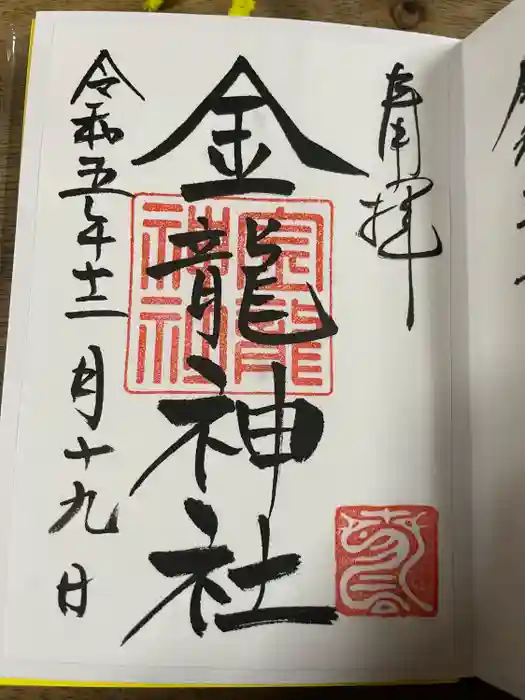 奉拝
金龍神社
令和五年十二月十九日